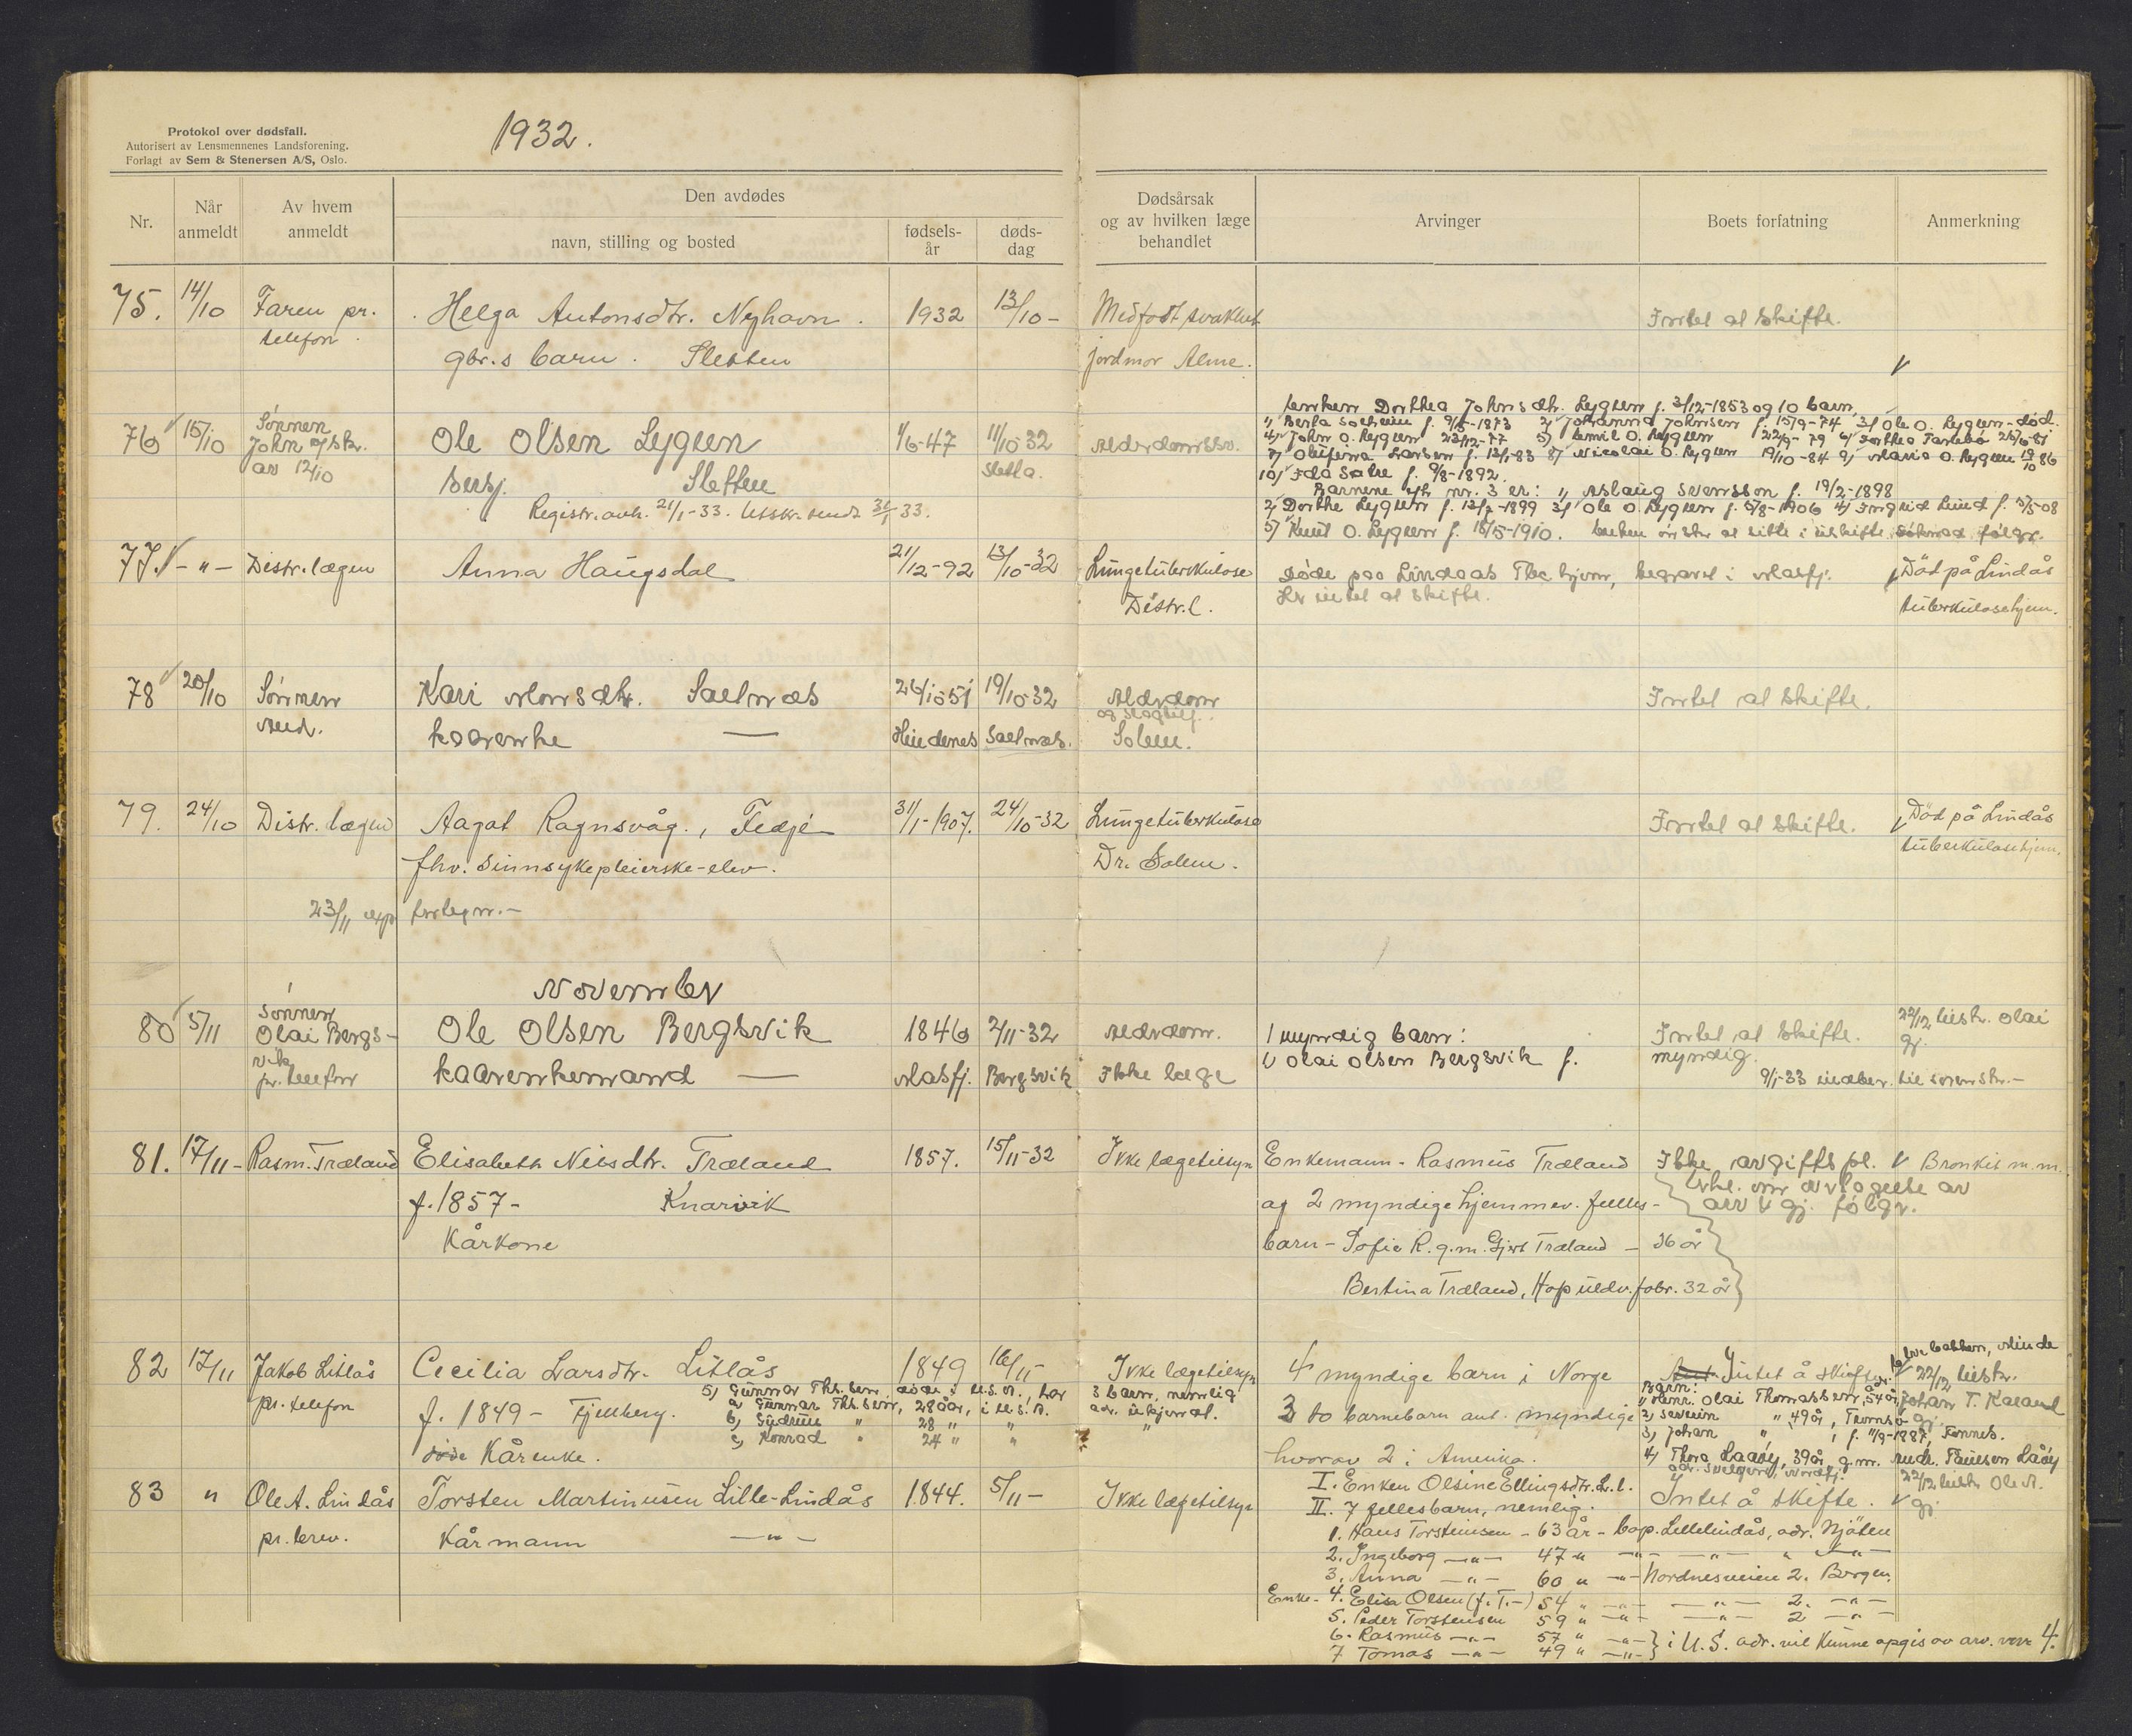 Protokol over dødsfall.
Autorisert av Lensmennenes Landsforening.
Forlagt av Sem & Stenersen A/S, Oslo.
1932.
Nr.
Når anmeldt
Av hvem anmeldt
Den avdødes
navn, stilling og bosted
fødsels-år
døds-dag
Dødsårsak og av hvilken læge behandlet
Arvinger
Boets forfatning
Anmerkning
75. 14/10 Faren pr. Helga Antonsdtr. Nyhavn. 1932 13/10- Medfødt svakhet Intet at skifte.
telefon gbr.s barn. Sletten jordmor Alme.
76 15/10 Sønnen Ole Olsen Lygren 1/6-47 11/10-32 Alderdomssv.
John ogskr. av 12/10 Sletten Sletta.
Registr. avh. 21/1-33. Utskr. sendt 31/1 33.
Enken Dorthea Johnsdtr. Lygren f. 3/12-1853 og 10 barn.
1) Berta Solheim f. 9/5-1873 2) Johanna Johnsen f. 15/9-74 3) Ole O. Lygren - död.
4) John O. Lygren 23/12-77 5) Emil O. Lygren 22/9-79 6) Dorthea 26/6-81
7) Olufina Larsen f. 13/1-83 8) Nicolai O. Lygren 19/10-84 9) Maria O. Lygren 19/10 86
10) Ida f. 9/8-1892.
Barnene eft. nr. 3 er: 1) Aslaug Svensson f. 19/2-1898
2) Dorthe Lygren f. 13/2-1899 3) Ole O. Lygren f. 5/8-1906 4) Ingrid Lund f. 5/5-08
5) Knut O. Lygren f. 18/5-1910. Enken ønsker at sitte i uskifte. Søknad følger.
77. - " - Distr.lægen Anna Haugsdal 21/12-92 13/10-32 Lungetuberkulose Døde paa Lindaas Tbc hjem, begravet i Masfj. Död på Lindås
Distr.l. Er intet at skifte. tuberkulosehjem.
78 20/10 Sønnen Kari Monsdtr. Saelnæs 26/10 51 19/10-32 Alderdom Intet at skifte.
kaarenke — Hundenes Saelnæs. Solem.
79. 24/10 Distr. lægen Aagot Ragnsvåg, Fedje 31/1-1907. 24/10-32 Lungetuberkulose Intet at skifte. Död på Lindås
fhv. sinnsykepleierske-elev. Dr. Solem. tuberkulosehjem.
23/11
November
80 5/11 Sønnen Ole Olsen Bergsvik 1846 2/11-32 Alderdom. 1 myndig barn: Intet at skifte. 22/12 utskr. Olai
Olai Bergsvik kaarenkemand — Masfj. Bergsvik Ikke læge 1) Olai Olsen Bergsvik f. myndig. gj.
pr. telefon 9/1-33 til sorenskr.-
81. 17/11- Rasm. Træland Elisabeth Nilsdtr. Træland 1857. 15/11-32 Ikke lægetilsyn Enkemann - Rasmus Træland Ikke avgiftspl. Bronkit m.m.
f. 1857- Knarvik og 2 myndige hjemmev. felles- Erkl. om overtagelse av
arv & gj. følger.
Kårkone barn - Sofie R. g.m. Gjert Træland - 36 år
Bertina Træland, Hop uldv.fabr. 32 år
82 17/11 Jakob Litlås Cecilia Larsdtr. Litlås 1849 16/11 Ikke lægetilsyn 4 myndige barn i Norge Intet å skifte. 22/12 utskr.
pr. telefon f. 1849 - Fjellberg. 3 to barnebarn ant. myndige Johan T. Kaland
5) Gunnar Ths.sen, døde i U.S.A., har 3 barn, nemlig
a) Gunnar Ths.sen, 28 år, i U.S.A. adr. ukjendt.
b) Gudrun " 28 " " "
c) Konrad " 24 " "
Kårenke. hvorav 2 i Amerika.
Barn:
1) Henr. Olai Thomassen, 54 år,
2) Severin " 49 år,
3) Johan " f. 11/9-1887, Fonnes.
4) Thora Laaöy, 39 år, g.m. Laåöy
83 " Ole A. Lindås Torsten Martinusen Lille-Lindås 1844. 5/11- Ikke lægetilsyn I. Enken Olsine Ellingsdtr. L.l. Intet å skifte. 22/12 utskr. Ole A.
pr. brev. Kårmann — " — II. 7 fellesbarn, nemlig. gj.
1. Hans Torsteinsen - 63 år - bop. Lillelindås, adr. Njöten
2. Ingeborg — " — 47 " — " — — " — " — " —
3. Anna — " — 60 " — " — Nordnesveien 2. Bergen.
Enke - 4. Elisa Olsen (f. T.-) 54 " — " — — " — 2. — " —
5. Peder Torsteinsen 59 " — " — — " — 2 — " —
6. Rasmus — " — 57 " — " — } i U.S. adr. vil kunne opgis av arv. nr. 4.
7. Tomas — " — 49 " — " —